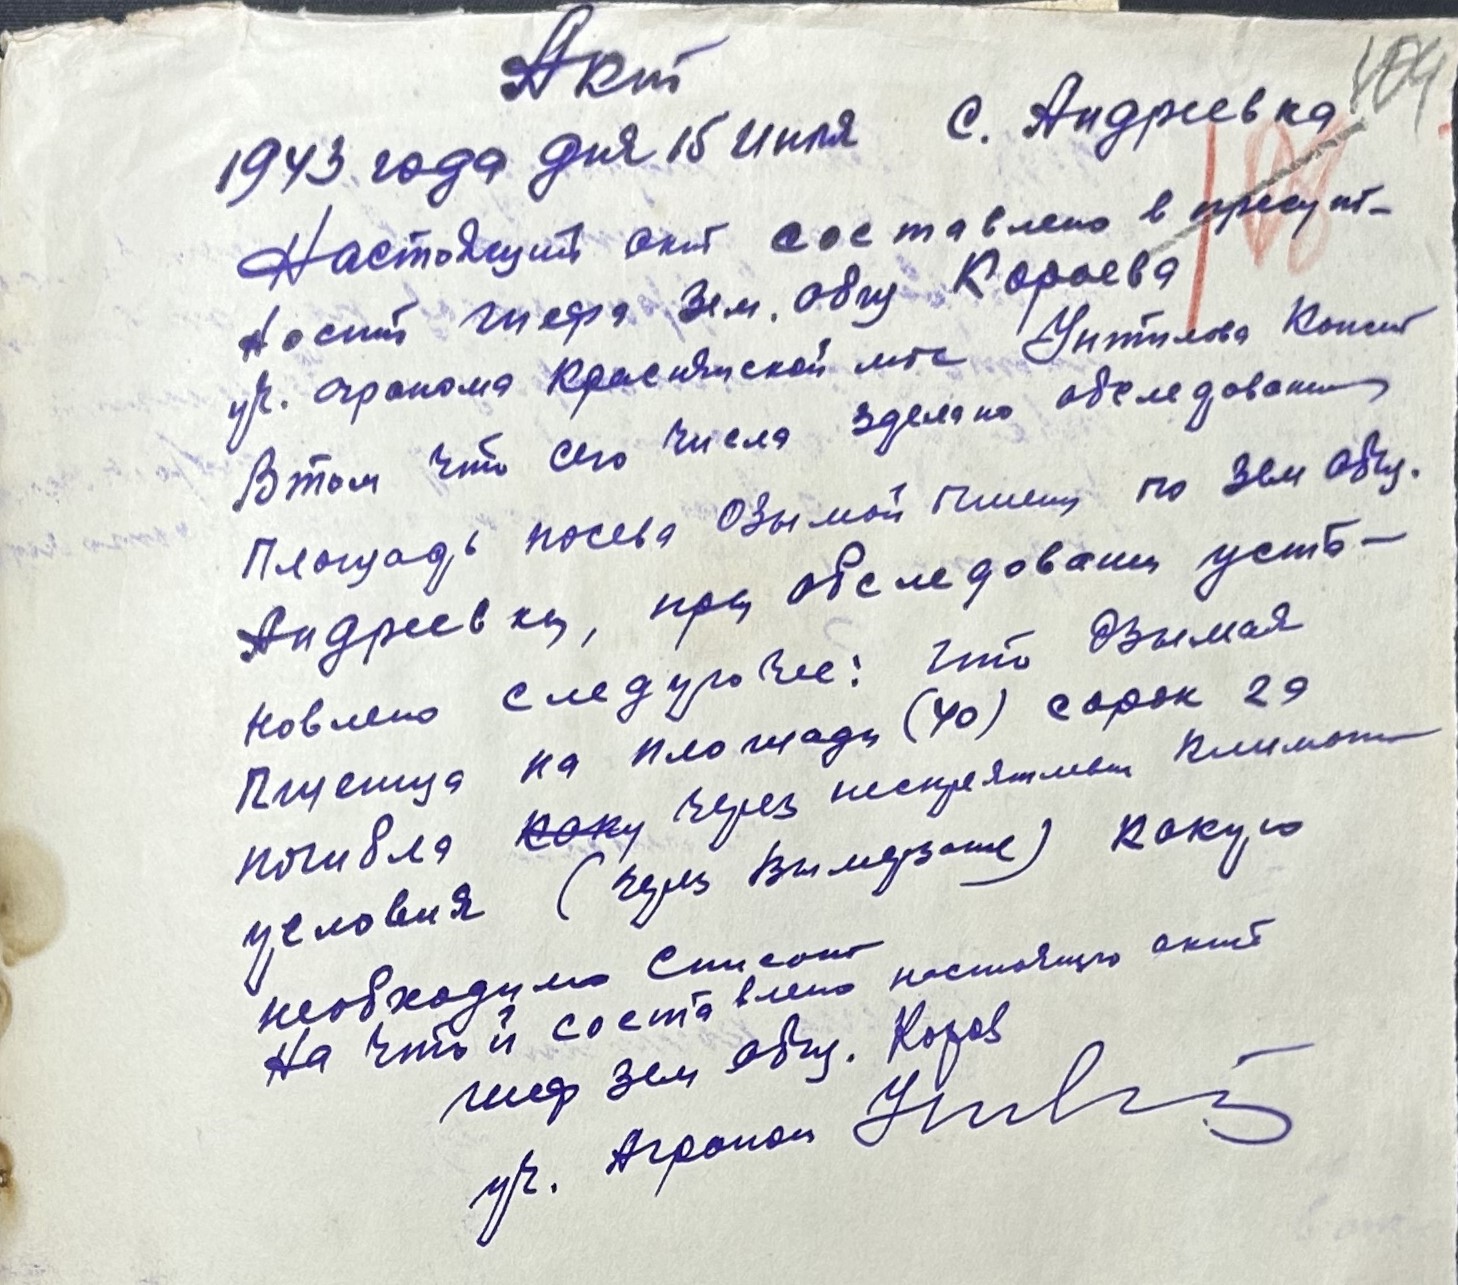 Акт
1943 года дня 15 Июля С. Андреевка
Настоящий акт составлено в присут-
ности шефа Зем. общ Короева
уч. агронома Краснянской мтс Унтилова Конст
В том что сего числа зделано обследование
Площадь посева Озымой пшениц по Зем общ.
Андреевки, при обследовании уста-
новлено следуючее: что Озымая
Пшеница на площади (40) сорок га
погибла каку через неспреятливи климати
условия (через Вымерзание) какую
необходимо Списать
На что й составлено настоящий акт
шеф Зем общ. Короев
уч. Агроном